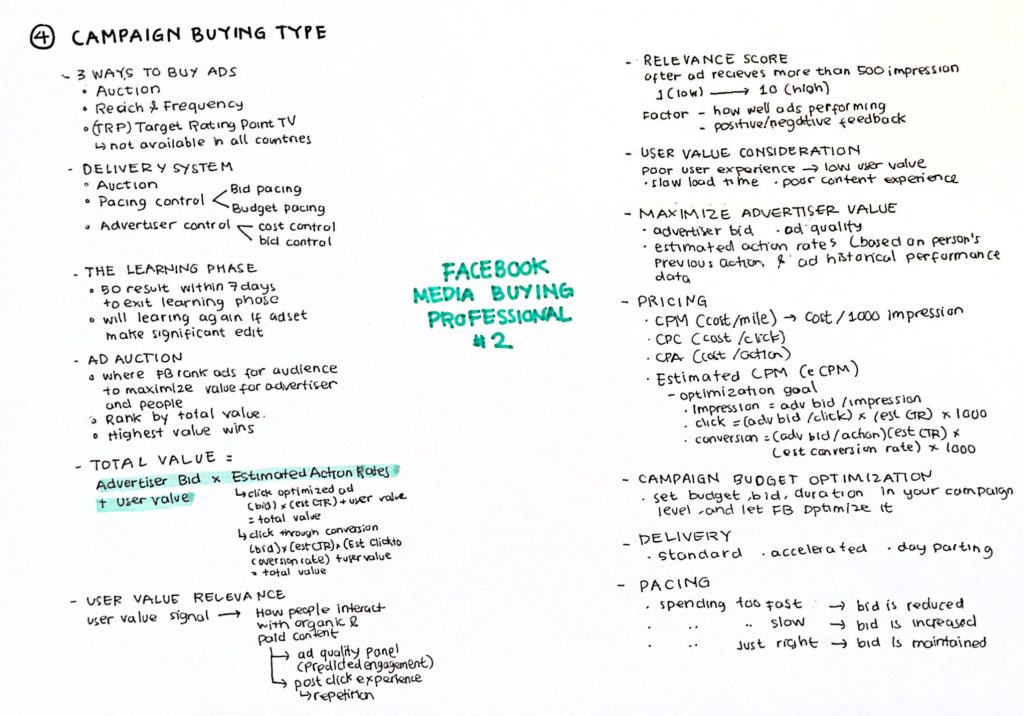 ④ CAMPAIGN BUYING TYPE
- 3 WAYS TO BUY ADS
• Auction
• Reach & Frequency
• (TRP) Target Rating Point TV
↳ not available in all countries
- DELIVERY SYSTEM
• Auction
• Pacing control < Bid pacing
Budget pacing
• Advertiser control < cost control
bid control
- THE LEARNING PHASE
• 50 result within 7 days
to exit learning phase
• will learing again if adset
make significant edit
- AD AUCTION
• where FB rank ads for audience
to maximize value for advertiser
and people
• Rank by total value.
• Highest value wins
- TOTAL VALUE =
Advertiser Bid × Estimated Action Rates
+ user value
↳ click optimized ad
(bid) × (est CTR) + user value
= total value
↳ click through conversion
(bid) × (est CTR) × (Est Click to
coversion rate) + user value
= total value
- USER VALUE RELEVANCE
user value signal → How people interact
with organic &
paid content
→ ad quality panel
(Predicted engagement)
→ post click experience
↳ repetition
FACEBOOK
MEDIA BUYING
PROFESSIONAL
#2
- RELEVANCE SCORE
after ad recieves more than 500 impression
1 (low) → 10 (high)
Factor - how well ads performing
- positive/negative feedback
- USER VALUE CONSIDERATION
poor user experience → low user value
• slow load time • poor content experience
- MAXIMIZE ADVERTISER VALUE
• advertiser bid • ad quality
• estimated action rates (based on person's
previous action, & ad historical performance
data
- PRICING
• CPM (cost/mile) → cost / 1000 impression
• CPC (cost /click)
• CPA (cost /action)
• Estimated CPM (eCPM)
- optimization goal
• Impression = adv bid /impression
• click = (adv bid /click) × (est CTR) × 1000
• conversion = (adv bid/action)(est CTR) ×
(est conversion rate) × 1000
- CAMPAIGN BUDGET OPTIMIZATION
• set budget, bid, duration in your campaign
level and let FB optimize it
- DELIVERY
• standard • accelerated • day parting
- PACING
• spending too fast → bid is reduced
• " " slow → bid is increased
• " just right → bid is maintained